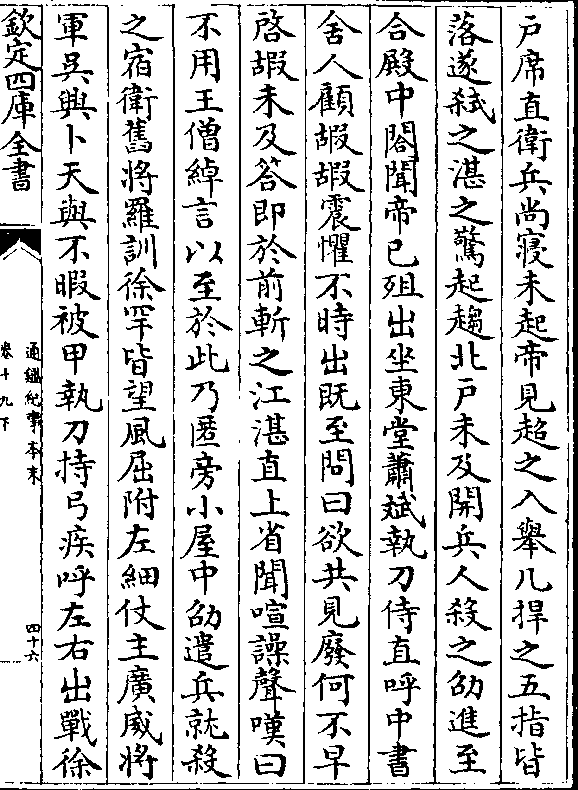 戸席直衛兵尚寝未起帝見超之入舉几捍之五指皆
落遂弑之湛之驚起趨北戸未及開兵人殺之劭進至
合殿中閤聞帝已殂出坐東堂蕭斌執刀侍直呼中書
舍人顧嘏嘏震懼不時出既至問曰欲共見廢何不早
啓嘏未及答即於前斬之江湛直上省聞喧譟聲嘆曰
不用王僧綽言以至於此乃匿旁小屋中劭遣兵就殺
之宿衛舊將羅訓徐罕皆望風屈附左細仗主廣威將
軍吳興卜天與不暇被甲執刀持弓疾呼左右出戰徐
欽定四庫全書
通鑑紀事本末
卷十九下
四十六